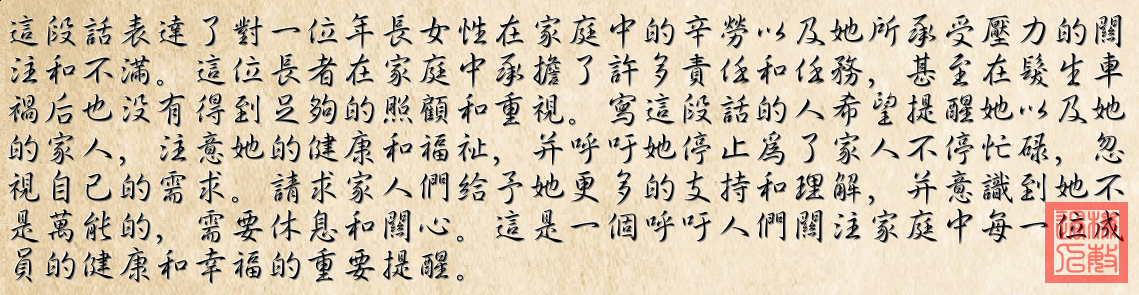 這段話表達了對一位年長女性在家庭中的辛勞以及她所承受壓力的關
注和不滿。這位長者在家庭中承擔了許多責任和任務，甚至在髮生車
禍后也没有得到足夠的照顧和重視。寫這段話的人希望提醒她以及她
的家人，注意她的健康和福祉，并呼吁她停止爲了家人不停忙碌，忽
視自己的需求。請求家人們給予她更多的支持和理解，并意識到她不
是萬能的，需要休息和關心。這是一個呼吁人們關注家庭中每一位成
員的健康和幸福的重要提醒。